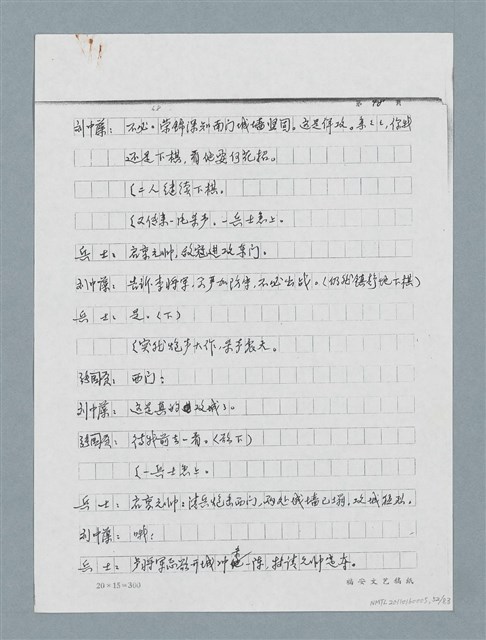 第 48 页
刘中藻：不必。荣锦深知南门城墙坚固。这是佯攻。来来来，你我
还是下棋，看他耍何花招。
（二人继续下棋。
（又传来一阵杀声。一兵士急上。
兵士：启禀元帅，敌寇进攻东门。
刘中藻：告诉李将军，只严加防守，不必出战。（仍然镇静地下棋）
兵士：是。（下）
（突然炮声大作，杀声震天。
西门：
刘中藻：这是真的攻城了。
待我前去一看。（欲下）
（一兵士急上。
兵士：启禀元帅：清兵炮击西门，两处城墙已塌，攻城极烈。
刘中藻：哦！
兵士：将军正欲开城冲杀一阵，特请元帅定夺。
20×15=300
福安文艺稿纸